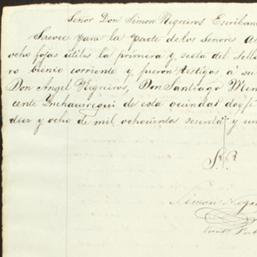 Señor Don Simon Negueiros Escribano
para la parte de los Señores
ocho fojas útiles la primera y sesta del sello
ro bienio corriente y fueron testigos a su
Don Angel Negueiros, Don Santiago Men
cente Inchaurregui de esta vecindad doy fé
diez y ocho de mil ochocientos sesenta y un
Simon Negu